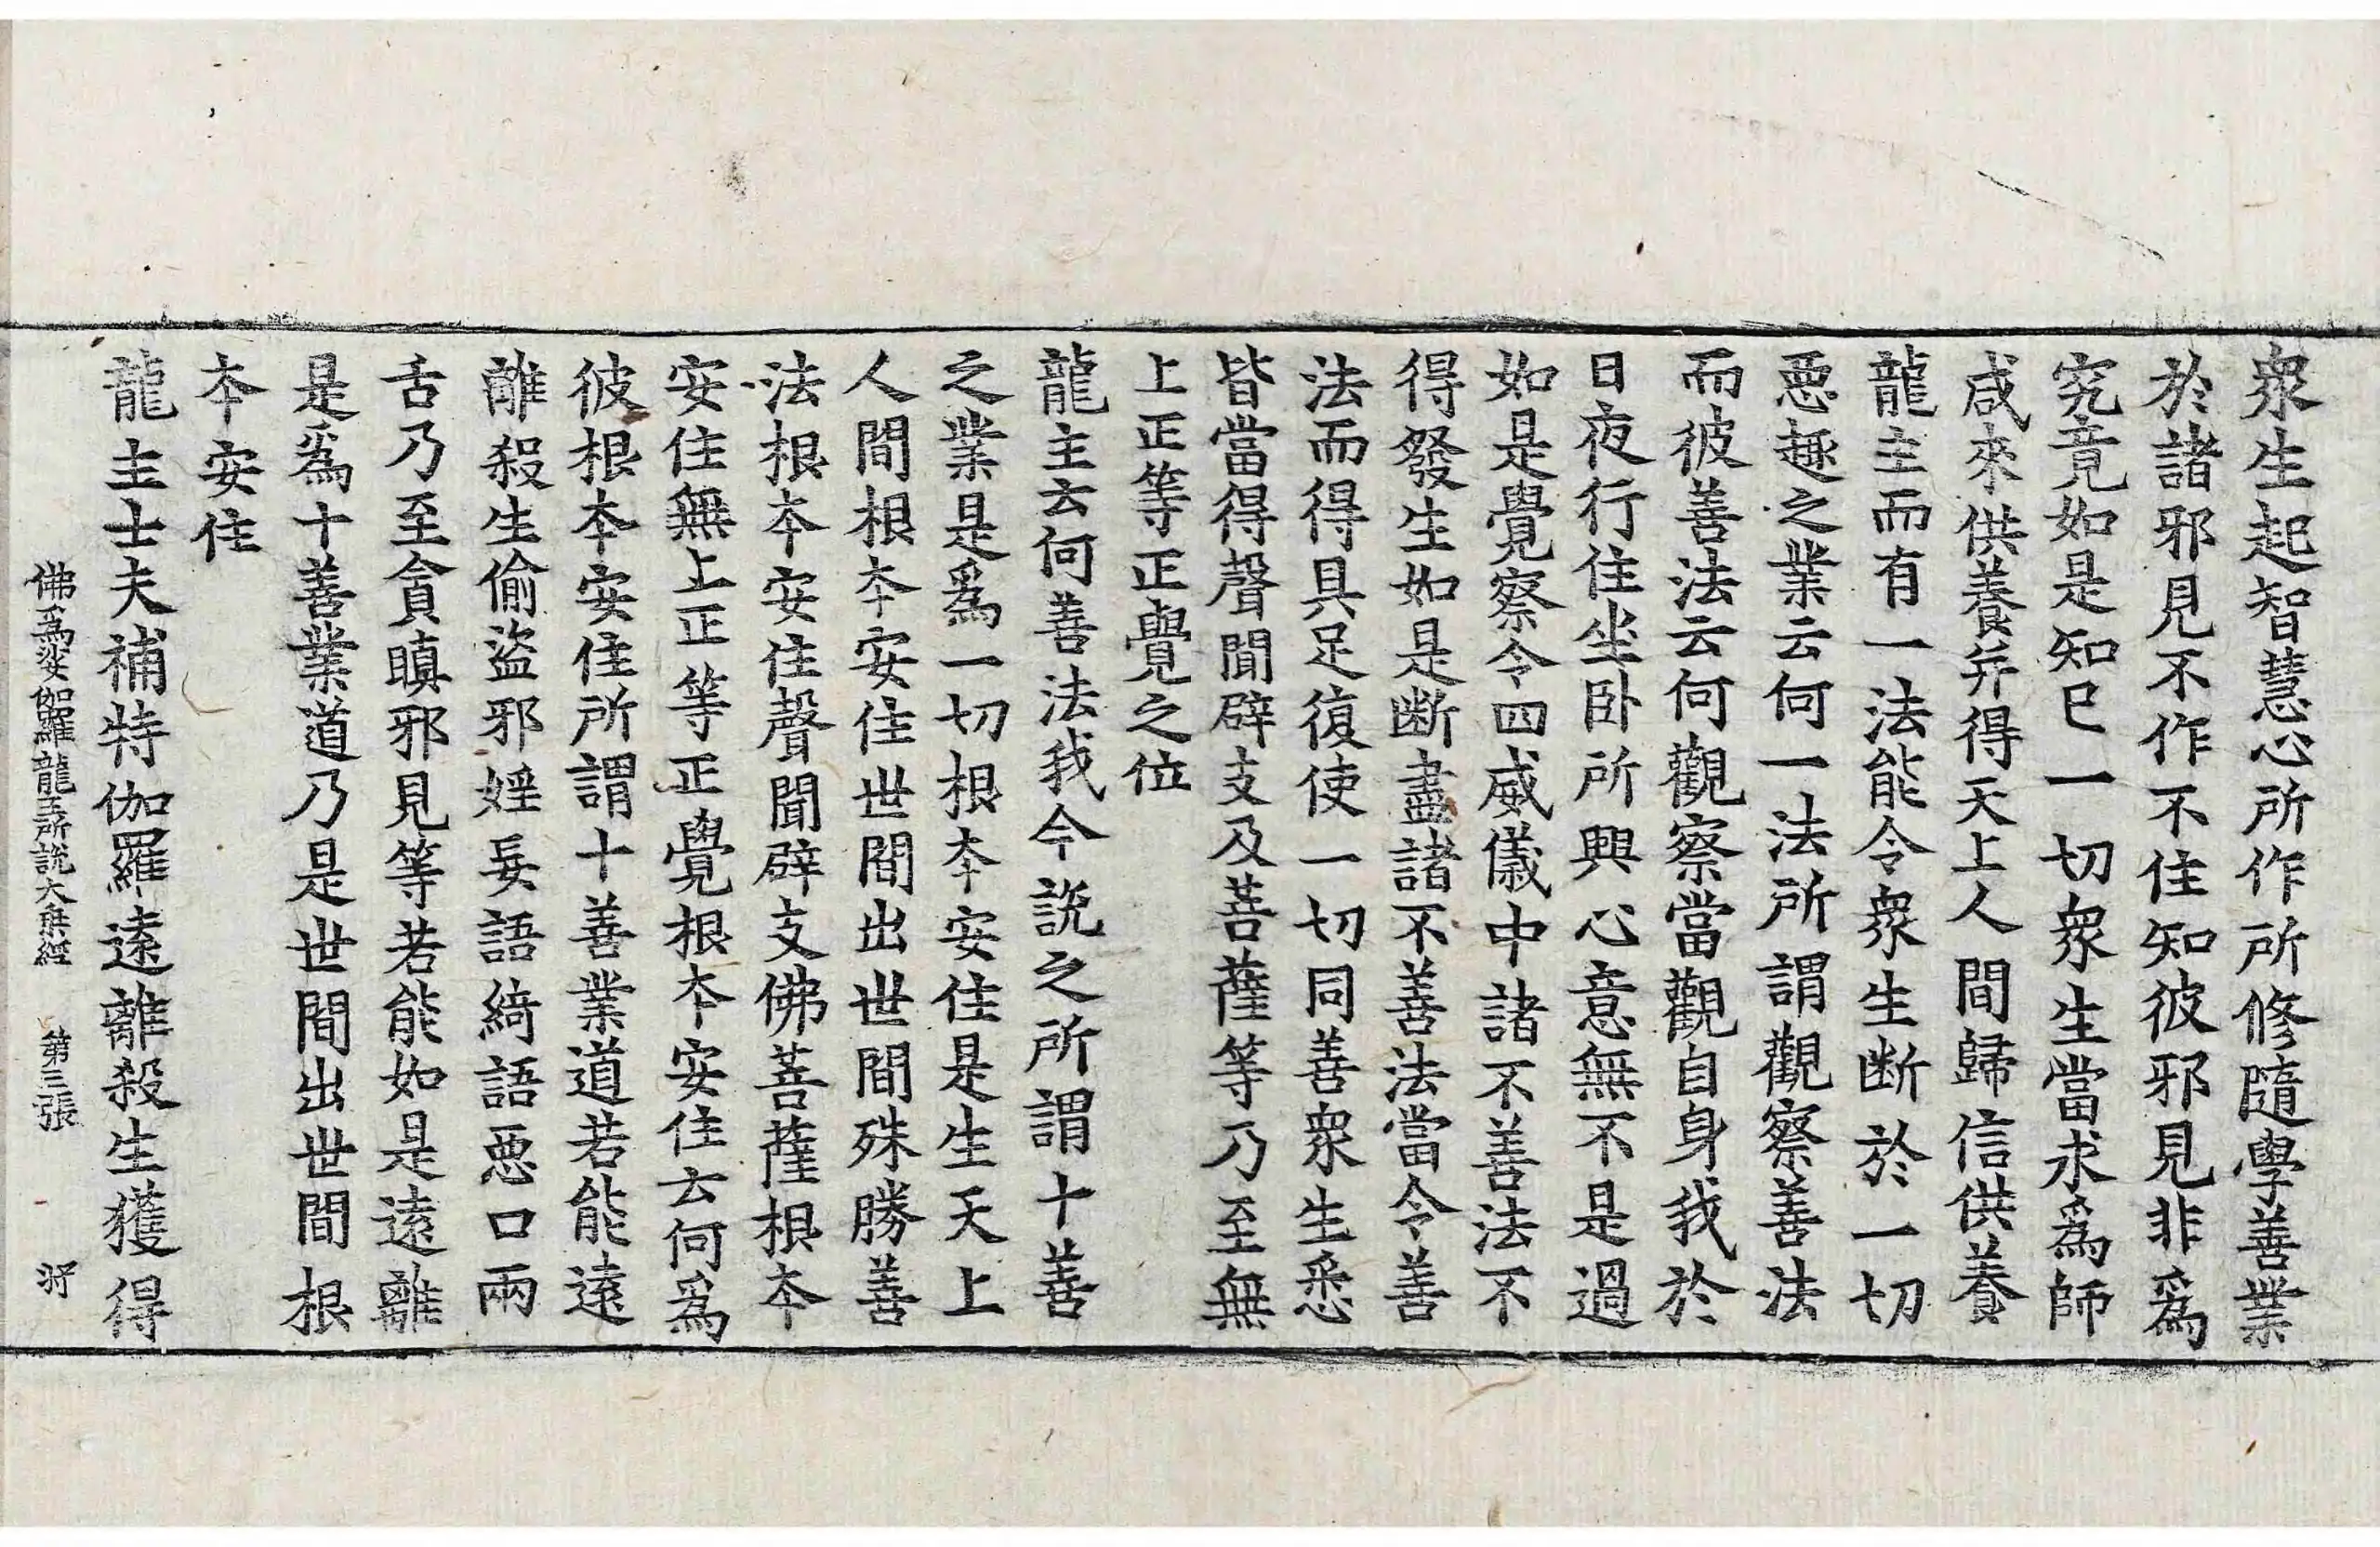 衆生起智慧心所作所修隨學善業
於諸邪見不作不住知彼邪見非爲
究竟如是知已一切衆生當求爲師
咸來供養并得天上人間歸信供養
龍主而有一法能令衆生断於一切
惡趣之業云何一法所謂觀察善法
而彼善法云何觀察當觀自身我於
日夜行住坐卧所興心意無不是過
如是覺察令四威儀中諸不善法不
得發生如是断盡諸不善法當令善
法而得具足復使一切同善衆生悉
皆當得聲聞辟支及菩薩等乃至無
上正等正覺之位
龍主云何善法我今説之所謂十善
之業是爲一切根本安住是生天上
人間根本安住世間出世間殊勝善
法根本安住聲聞辟支佛菩薩根本
安住無上正等正覺根本安住云何爲
彼根本安住所謂十善業道若能遠
離殺生偷盜邪婬妄語綺語惡口兩
舌乃至貪瞋邪見等若能如是遠離
是爲十善業道乃是世間出世間根
本安住
龍主士夫補特伽羅遠離殺生獲得
佛爲娑伽羅龍王所説大乘經 第三張